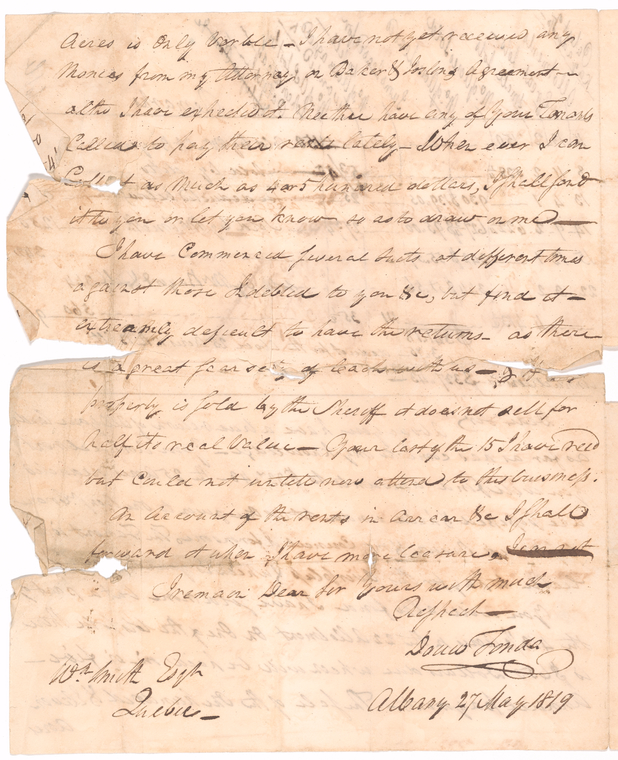 Acres is Only Verble – I have not yet received any
Monies from my Attorney on Baker & Agreement –
altho I have expected it. Neither have any of your Tenants
Called to pay their rents lately – When ever I can
Collect as Much as 4 or 5 hundred dollars, I shall send
it to you or let you know so as to draw on me –
I have Commenced several Suits at different times
against those Indebted to you &c, but find it –
extreamly deficult to have the returns – as there
is a great scarsety of Cash with us – & if
property is Sold by the Sheriff it does not sell for
half its real Value – Your last of the 15 I have recd
but could not untill now attend to this buisness.
An Account of the rents in Arrear &c I shall
forward it when I have more leasure.
I remain Dear Sir Yours with much
Respect –
Douw Fonda
Wm Smith Esqr
Quebec –
Albany 27 May 1819